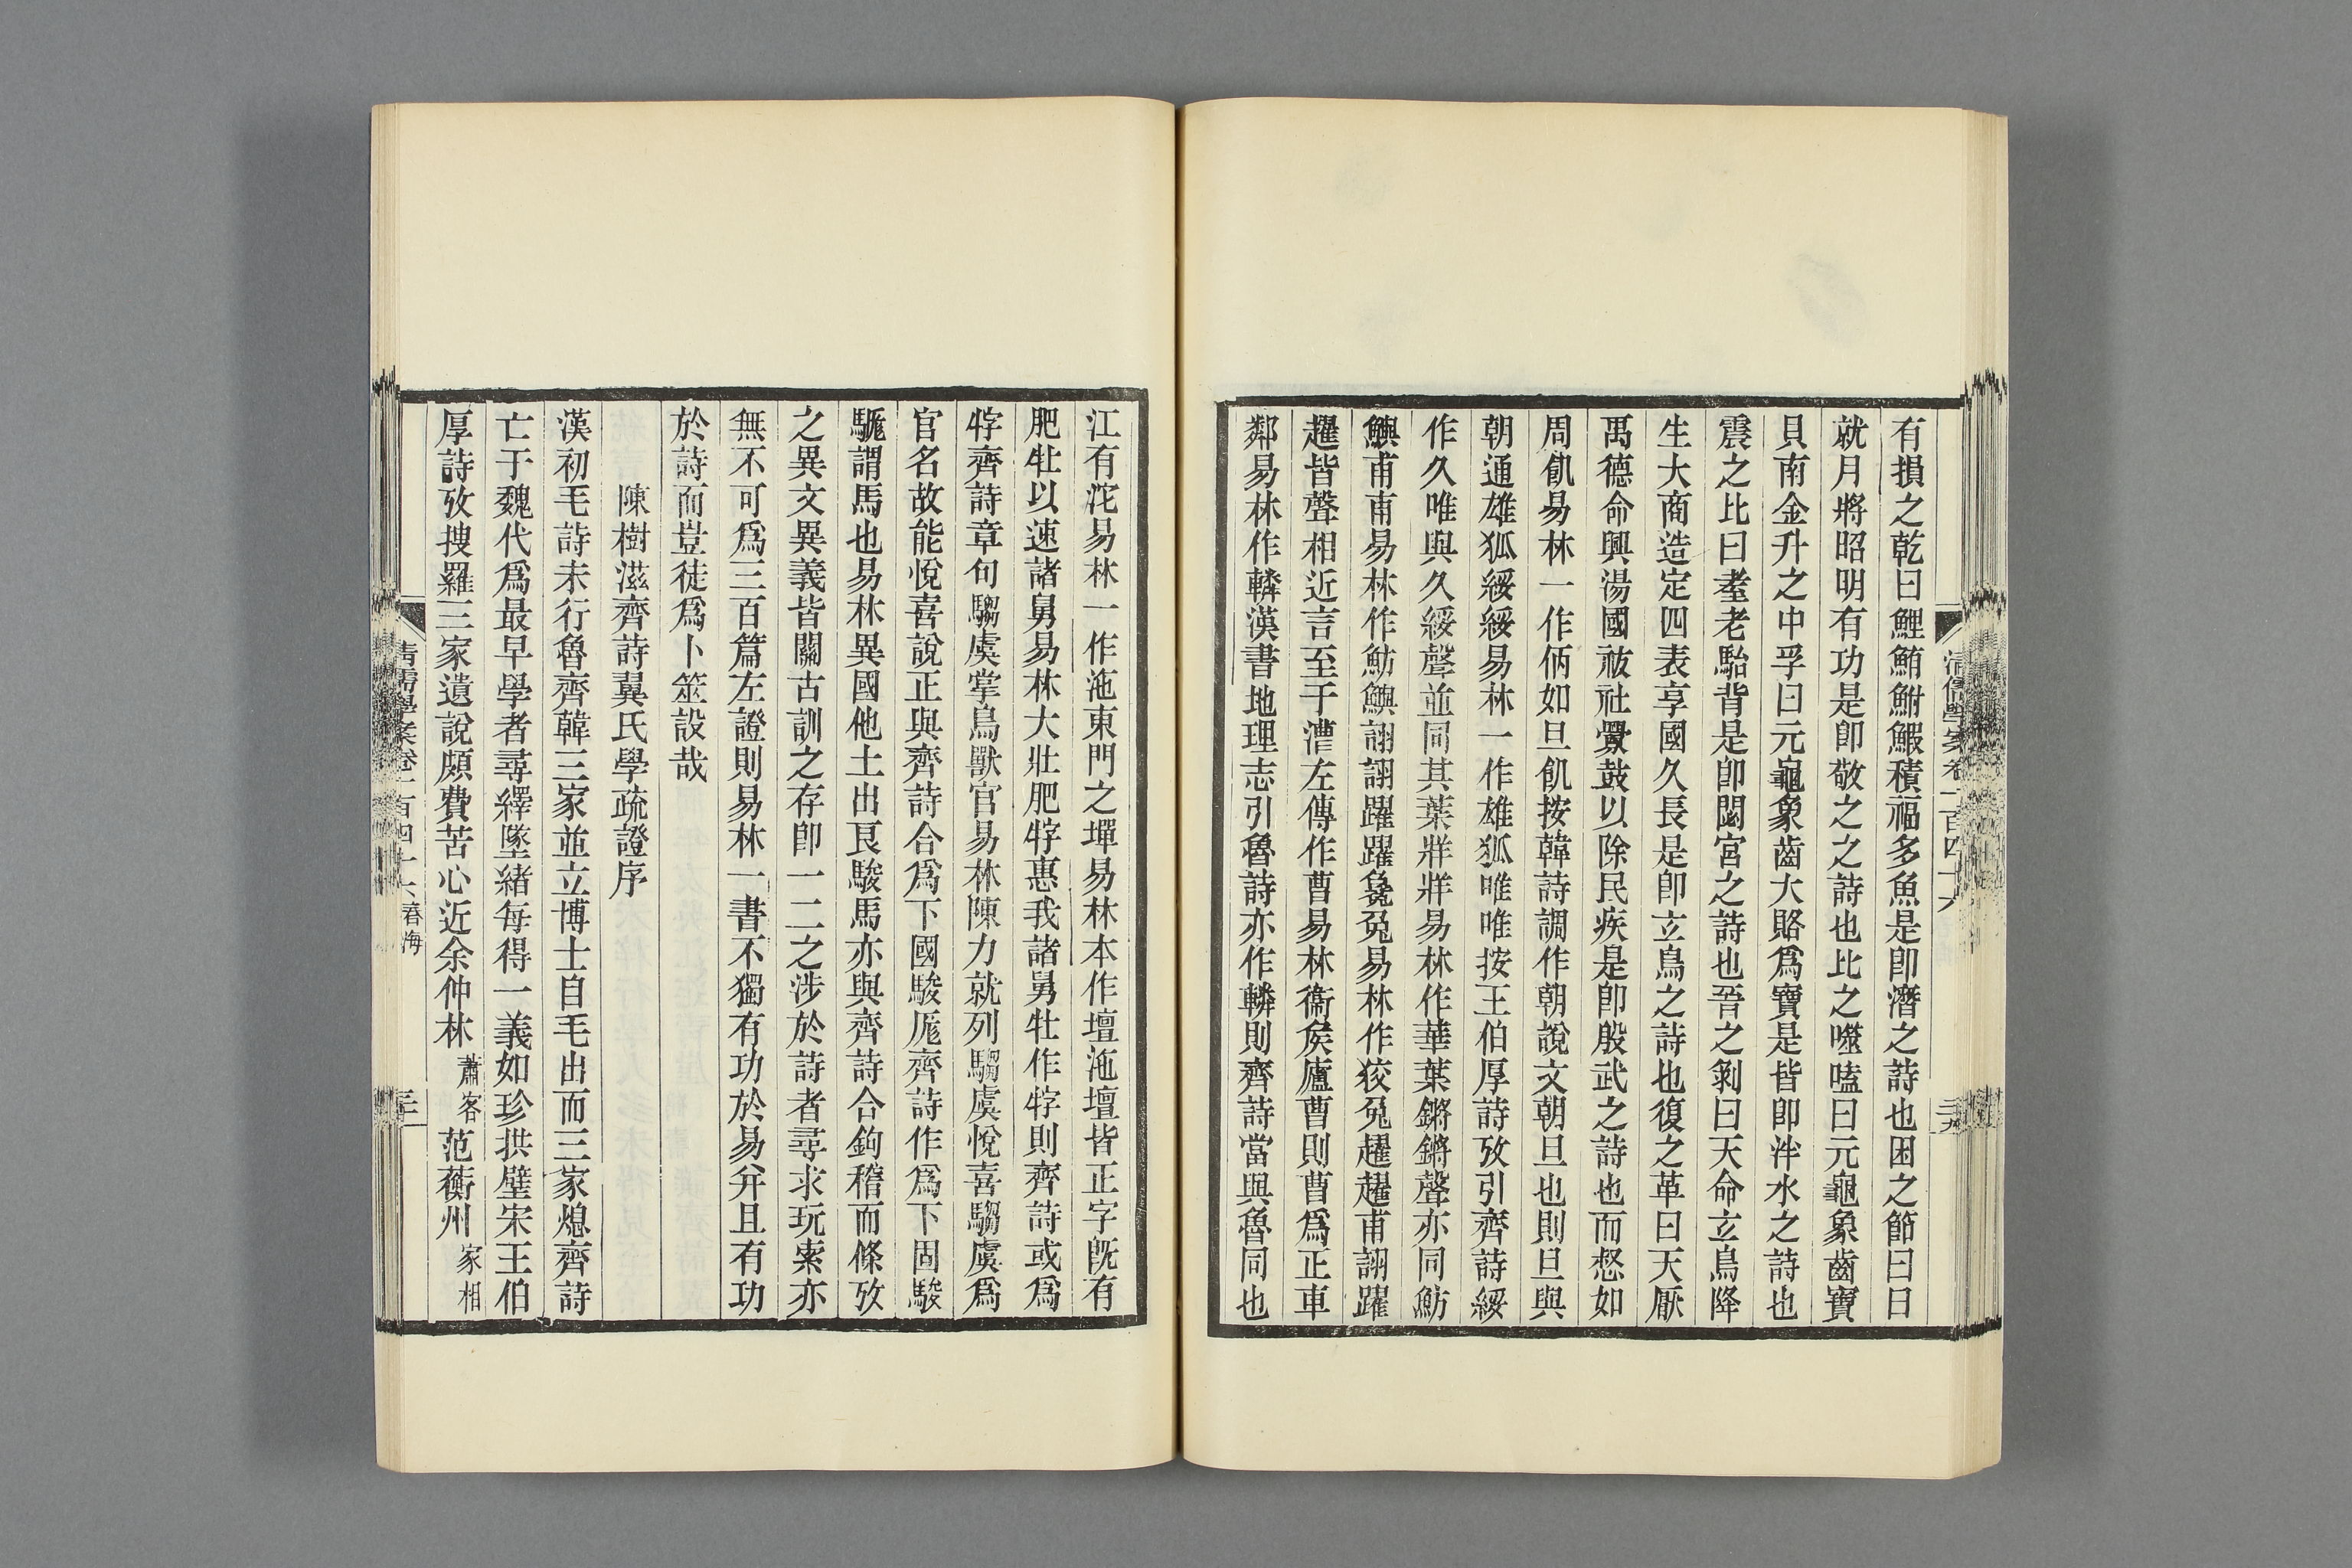 有損之乾曰鯉鮪鮒鰕積福多魚是卽潛之詩也困之節曰日
就月將昭明有功是卽敬之之詩也比之噬嗑曰元龜象齒寶
貝南金升之中孚曰元龜象齒大賂爲寶是皆卽泮水之詩也
震之比曰耋老駘背是卽閟宮之詩也晉之剝曰天命玄鳥降
生大商造定四表享國久長是卽玄鳥之詩也復之革曰天厭
禹德命興湯國祓社釁鼓以除民疾是卽殷武之詩也而惄如
周飢易林一作俩如旦飢按韓詩調作朝說文朝旦也則旦與
朝通雄狐綏綏易林一作雄狐唯唯按王伯厚詩攷引齊詩綏
作久唯與久綏聲並同其葉牂牂易林作華葉鏘鏘聲亦同魴
鱮甫甫易林作魴鱮詡詡躍躍毚兔易林作狡兔趯趯甫詡躍
趯皆聲相近言至于漕左傳作曹易林衞矦廬曹則曹爲正車
鄰易林作轔漢書地理志引魯詩亦作轔則齊詩當與魯同也
江有沱易林一作沲東門之墠易林本作壇沲壇皆正字旣有
肥牡以速諸舅易林大壯肥牸惠我諸舅牡作牸則齊詩或爲
牸齊詩章句騶虞掌鳥獸官易林陳力就列騶虞悅喜騶虞爲
官名故能悅喜說正與齊詩合爲下國駿厖齊詩作爲下固駿
駹謂馬也易林異國他土出良駿馬亦與齊詩合鉤稽而條攷
之異文異義皆關古訓之存卽一二之涉於詩者尋求玩索亦
無不可爲三百篇左證則易林一書不獨有功於易幷且有功
於詩而豈徒爲卜筮設哉
陳樹滋齊詩翼氏學疏證序
漢初毛詩未行魯齊韓三家並立博士自毛出而三家熄齊詩
亡于魏代爲最早學者尋繹墜緒每得一義如珍拱璧宋王伯
厚詩攷搜羅三家遺說頗費苦心近余仲林蕭客范蘅州家相